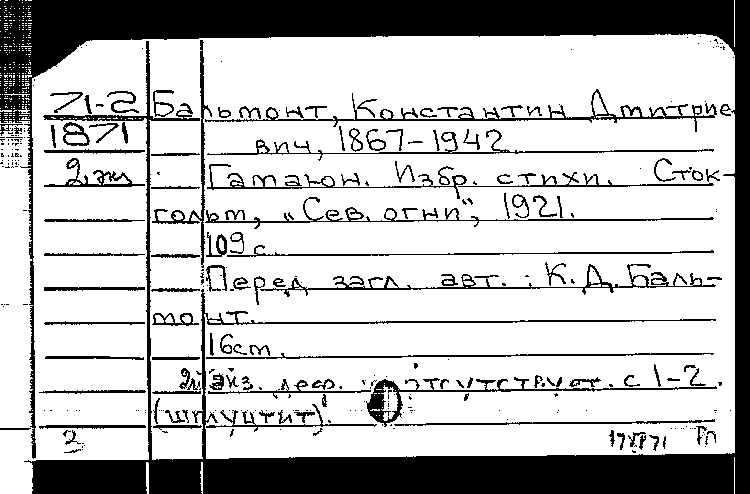 71-2 Бальмонт, Константин Дмитрие-
1871 вич, 1867-1942
2 экз. Гамаюн. Избр. стихи. Сток-
гольм, „Сев. огни“, 1921.
109 с.
Перед загл. авт.: К.Д. Баль-
монт.
16 см.
2й экз. деф. отсутствует. с 1-2.
(шмуцтит).
3 17 VI 71 РП